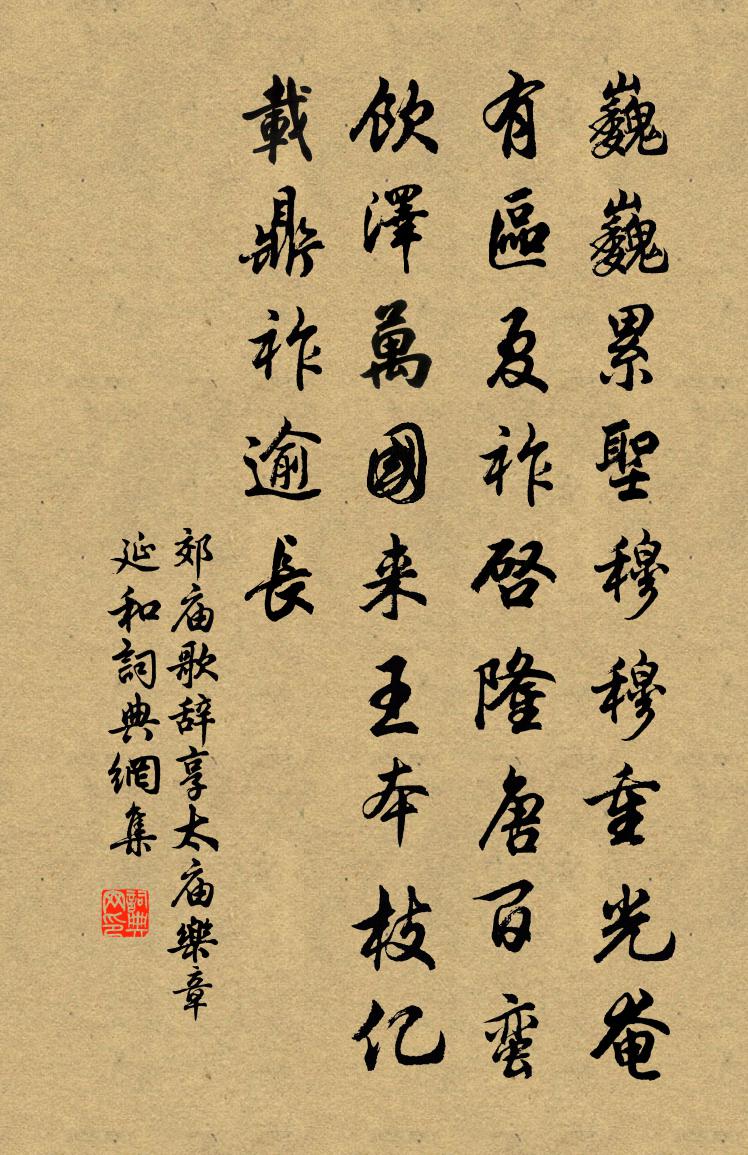 巍巍累聖穆穆重光奄
有區夏祚啓隆唐百蛮
飲澤萬國来王本枝亿
載鼎祚逾長
郊庙歌辞享太庙樂章
延和詞典網集
詞典
网印